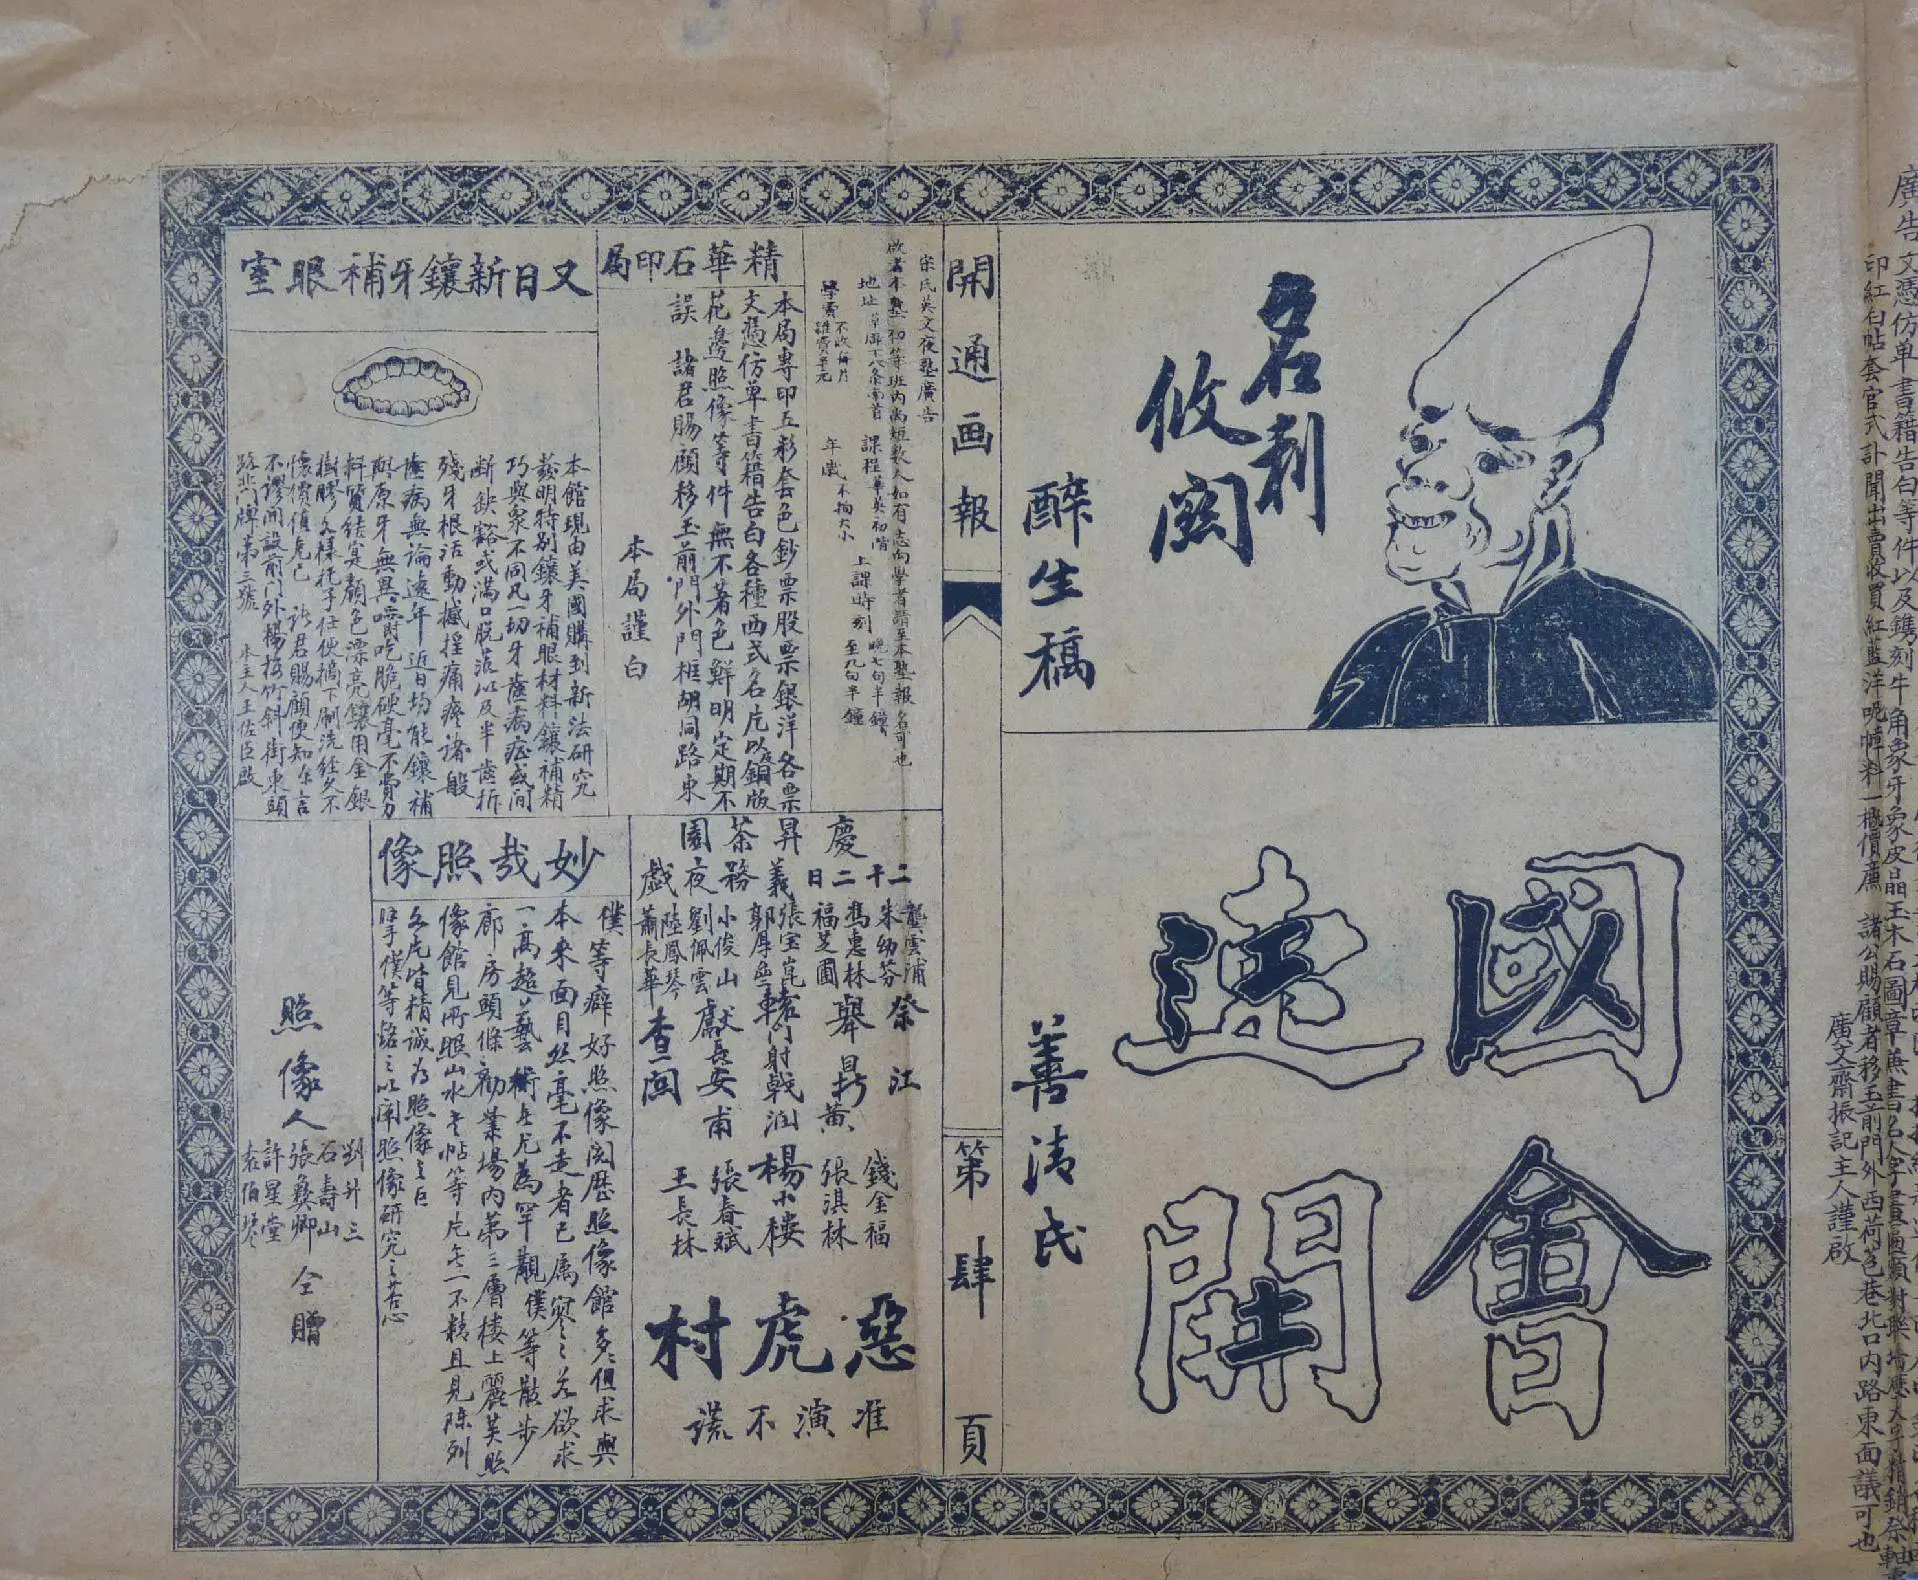 廣告文憑仿單書籍告白等件以及鐫刻牛角象牙象皮晶玉木石圖章兼書名人字畫匾額對聯
印紅白帖套官式訃聞出賣收買紅藍洋呢幛料一概價廉 諸公賜顧者移玉前門外西荷包巷北口內路東面議可也
廣文齋振記主人謹啟
名利
攸關
醉生稿
國會
速開
善清氏
開通画報
第肆頁
宋氏英文夜塾廣告
啟者本塾初等班內尚短數人如有志向學者請至本塾報名可也
課程華英初階 上課時刻 晚七句半鐘 至九句半鐘
學費
年歲不拘大小
精華石印局
本局專印五彩套色鈔票股票銀洋各票
文憑仿單書籍告白各種西式名片以及銅版
花邊照像等件無不著色鮮明定期不
誤 諸君賜顧移玉前門外門框胡同路東
本局謹白
又日新鑲牙補眼室
本館現由美國購到新法研究
發明特別鑲牙補眼材料鑲補精
巧與衆不同凡一切牙齒病症或間
斷缺豁或滿口脫落以及半齒折
殘牙根活動撼搖痛疼諸般
齒病無論遠年近日均能鑲補
與原牙無異嚼吃脆硬毫不費力
料質結寔顏色漂亮鑲用金銀
樹膠各樣托子任便摘下刷洗經久不
懷價值克己 諸君賜顧便知余言
不謬開設前門外楊梅竹斜街東頭
路北門牌第三號 本主人王佐臣啟
慶昇茶園
二十二日
義務夜戲
龔雲浦
朱幼芬
祭江
馮惠林
福芝圃
舉鼎
張宝崑
郭厚齋
轅門射戟
小俊山
劉佩雲
獻長安
陸鳳琴
蕭長華
查関
錢金福
黃
張淇林
润
楊小楼
甫
張春斌
王長林
惡虎村
准演不謊
妙哉照像
僕等癖好照像閱歷照像館多但求與
本来面目丝毫不走者已属寥之若欲求
一高超藝術者尤為罕覯僕等散步
廊房頭條勸業場內第三層楼上麗芙照
像館見所照山水字帖等片無一不精且見陈列
各片皆精誠為照像之巨
擘僕等路之以開照像研究之苦心
照像人
劉升三
石壽山
張彝卿
許星堂
袁伯琴
仝贈